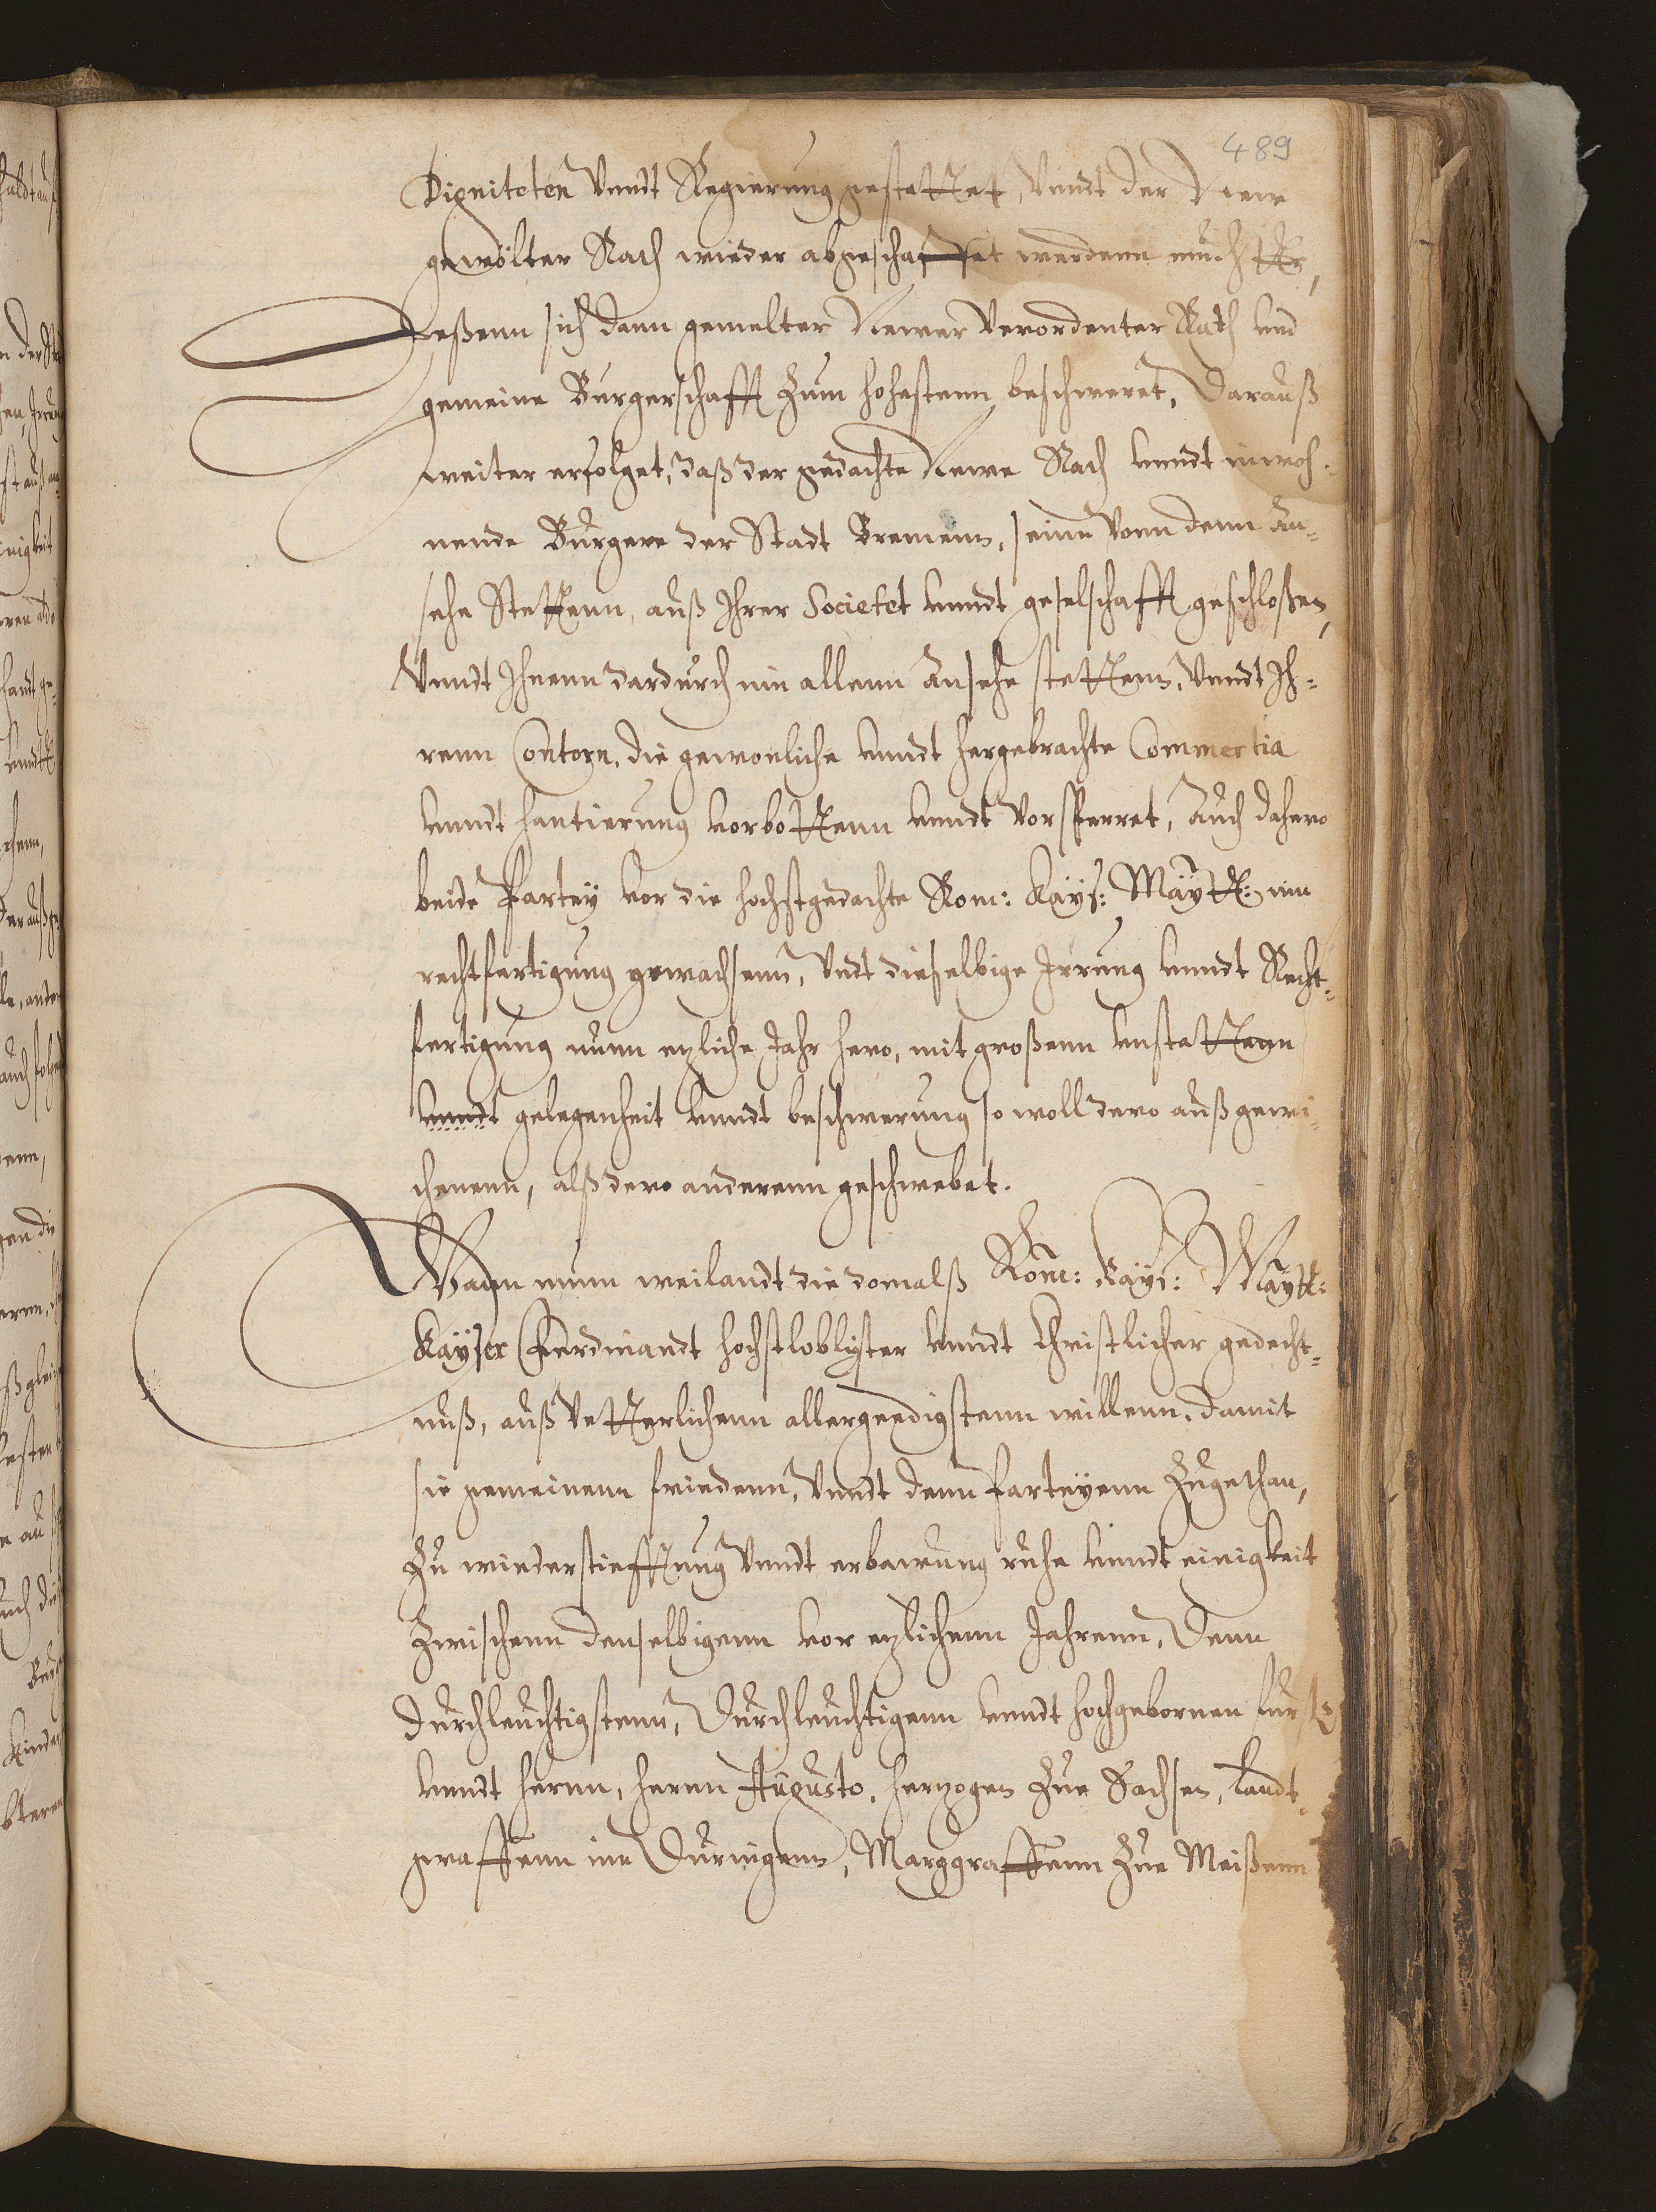 489
Digniteten Vnndt Regierung gestattet, Vnndt der Newe
gewölter Rath wieder abgeschaffet werdenn muchtte,
Deßenn sich dann gemelter Newer Verordenter Rath und
gemeine Burgerschafft Zum hohestenn beschweret, Darauß
weiter erfolget, daß der gedachte Newe Rath vnndt inwoh¬
nende Bürgere der Stadt Bremenn, seine Vonn denn An¬
sehe Stettenn, auß Ihrer Societet vnndt geselschafft geschloßen,
Vnndt Ihnenn dardurch inn allenn Ansehe stettenn, Vnndt Ih¬
renn Contorn, die gewonliche vnndt hergebrachte Commertia
vnndt hantierung vorbottenn vnndt Vorsperret, Auch dahero
beide Partey vor die hochstgedachte Rom: Kays: Maytt: inn
rechtfertigung gewachsenn, Vndt dieselbige Irrung vnndt Recht¬
fertigung nunn ezliche Jahr hero, mit großenn vnstattenn
vnndt gelegenheit vnndt beschwerung so woll dero außgewi¬
chenenn, alß dero anderenn geschwebet.
Wann nunn weilandt die domalß Rom: Kays: Maytt:
Kayser Ferdinandt hochstloblister vnndt Christlicher gedecht¬
nuß, auß Vetterlichenn allergnedigstenn willenn, damit
sie gemeinenn friedenn, Vnndt denn Parteyenn Zugethan,
Zu wiederstiefftung Vnndt erbawung ruhe vnndt einigkeit
Zwischenn denselbigenn vor ezlichenn Jahrenn, Denn
Durchleuchtigstenn, Durchleuchtigenn vnndt hochgebornen furste
vnndt hernn, hernn Augusto, herzogen Zue Sachsen, Landt¬
graffenn inn Duringenn, Marggraffenn Zue Meißenn